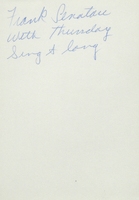 Frank Senatore
with Thunday
Sing A long